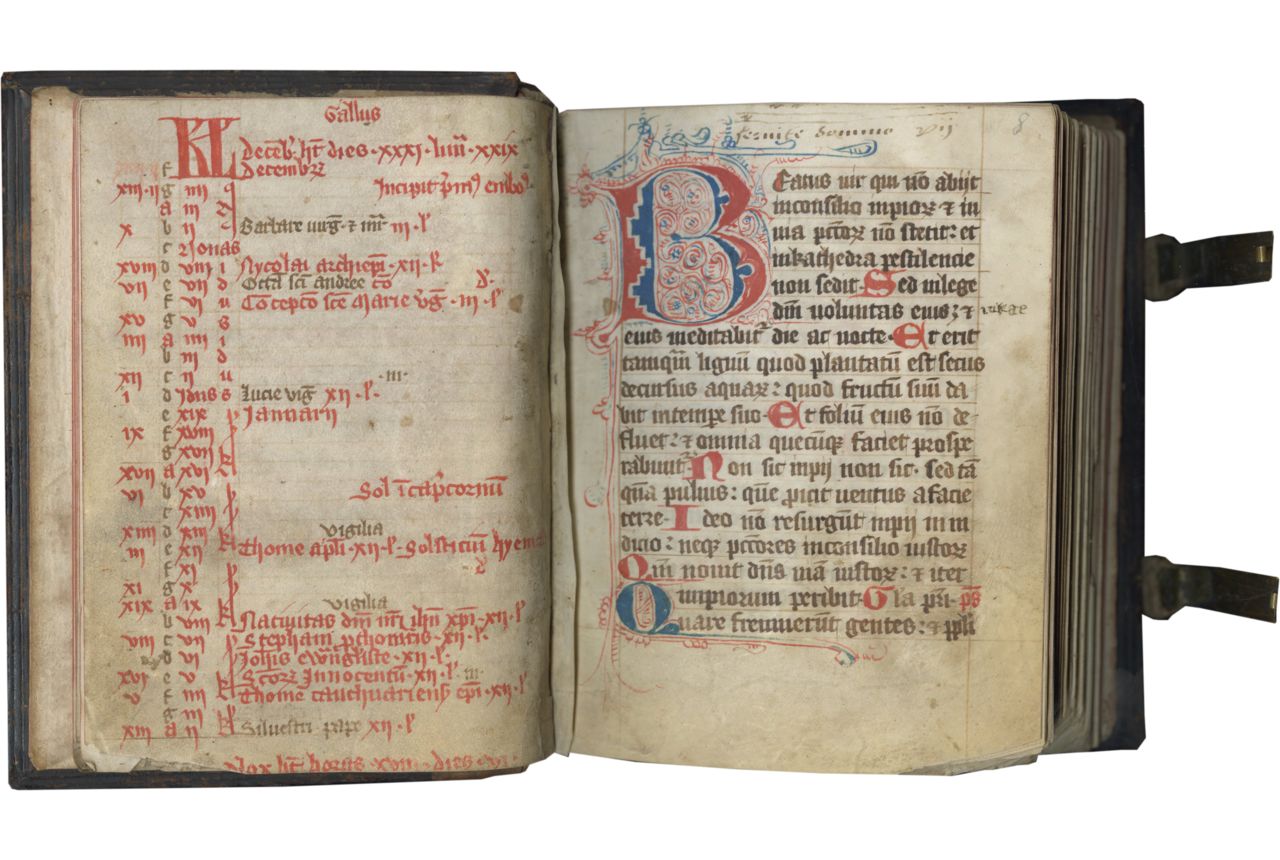 Gallus
KL Decēb. ht dies .xxxi. lun .xxix
f Decembrꝝ
xiii .ii g iiii Incipit pm9 embo
a iii
x b ii Barbare uirg. ⁊ mr iii . l
c Nonas
xviii d viii i Nycolai archiepi . xii . l
vii e vii d Octa sci andree co
f vi u Cōceptō sce Marie vg . iii . l
xv g v s
iiii a iiii i
b iii d
xii c ii u .iii.
i d Idus s Lucie virg xii . l .
e xix Ianuarii
ix f xviii
g xvii k
xvii a xvi
vi b xv Sol ī capcorniū
c xiiii
xiiii d xiii vigilia
iii e xii Thome apli . xii . l . Solsticiū hyema
f xi
xi g x
xix a ix vigilia
b viii Natiuitas dni nri ihu xpi . xii . l
viii c vii Stephani pthomris . xii . l .
d vi Iohis ewāgliste . xii . l .
xvi e v Scorꝝ Innocentū . xii . l . iii
v f iiii Thome cantuariens epi . xii . l
g iii
xiii a ii Siluestri pape xii . l
Nox ht horas xviii . dies . vi .
seruite domino vij
8
Beatus uir qui nō abijt
inconsilio impioꝝ ⁊ in
uia pctoꝝ nō stetit : et
inkathedra pestilencie
non sedit . Sed inlege
dni uoluntas eius : ⁊
eius meditabit die ac nocte . Et erit
tamqm lignū quod plantatū est secus
decursus aquaꝝ : quod fructū suū da
bit intempe suo . Et foliū eius nō de
fluet : ⁊ omnia quecūqꝫ faciet prospe
rabunt . Non sic impij non sic . sed tā
qua puluis : que proicit uentus a facie
terre . Ideo nō resurgūt impii in iu
dicio : neqꝫ pctores inconsilio iustoꝝ
Qm nouit dns uiā iustoꝝ : ⁊ iter
impiorum peribit . Gla pri . ps
Quare fremuerūt gentes : ⁊ ppli